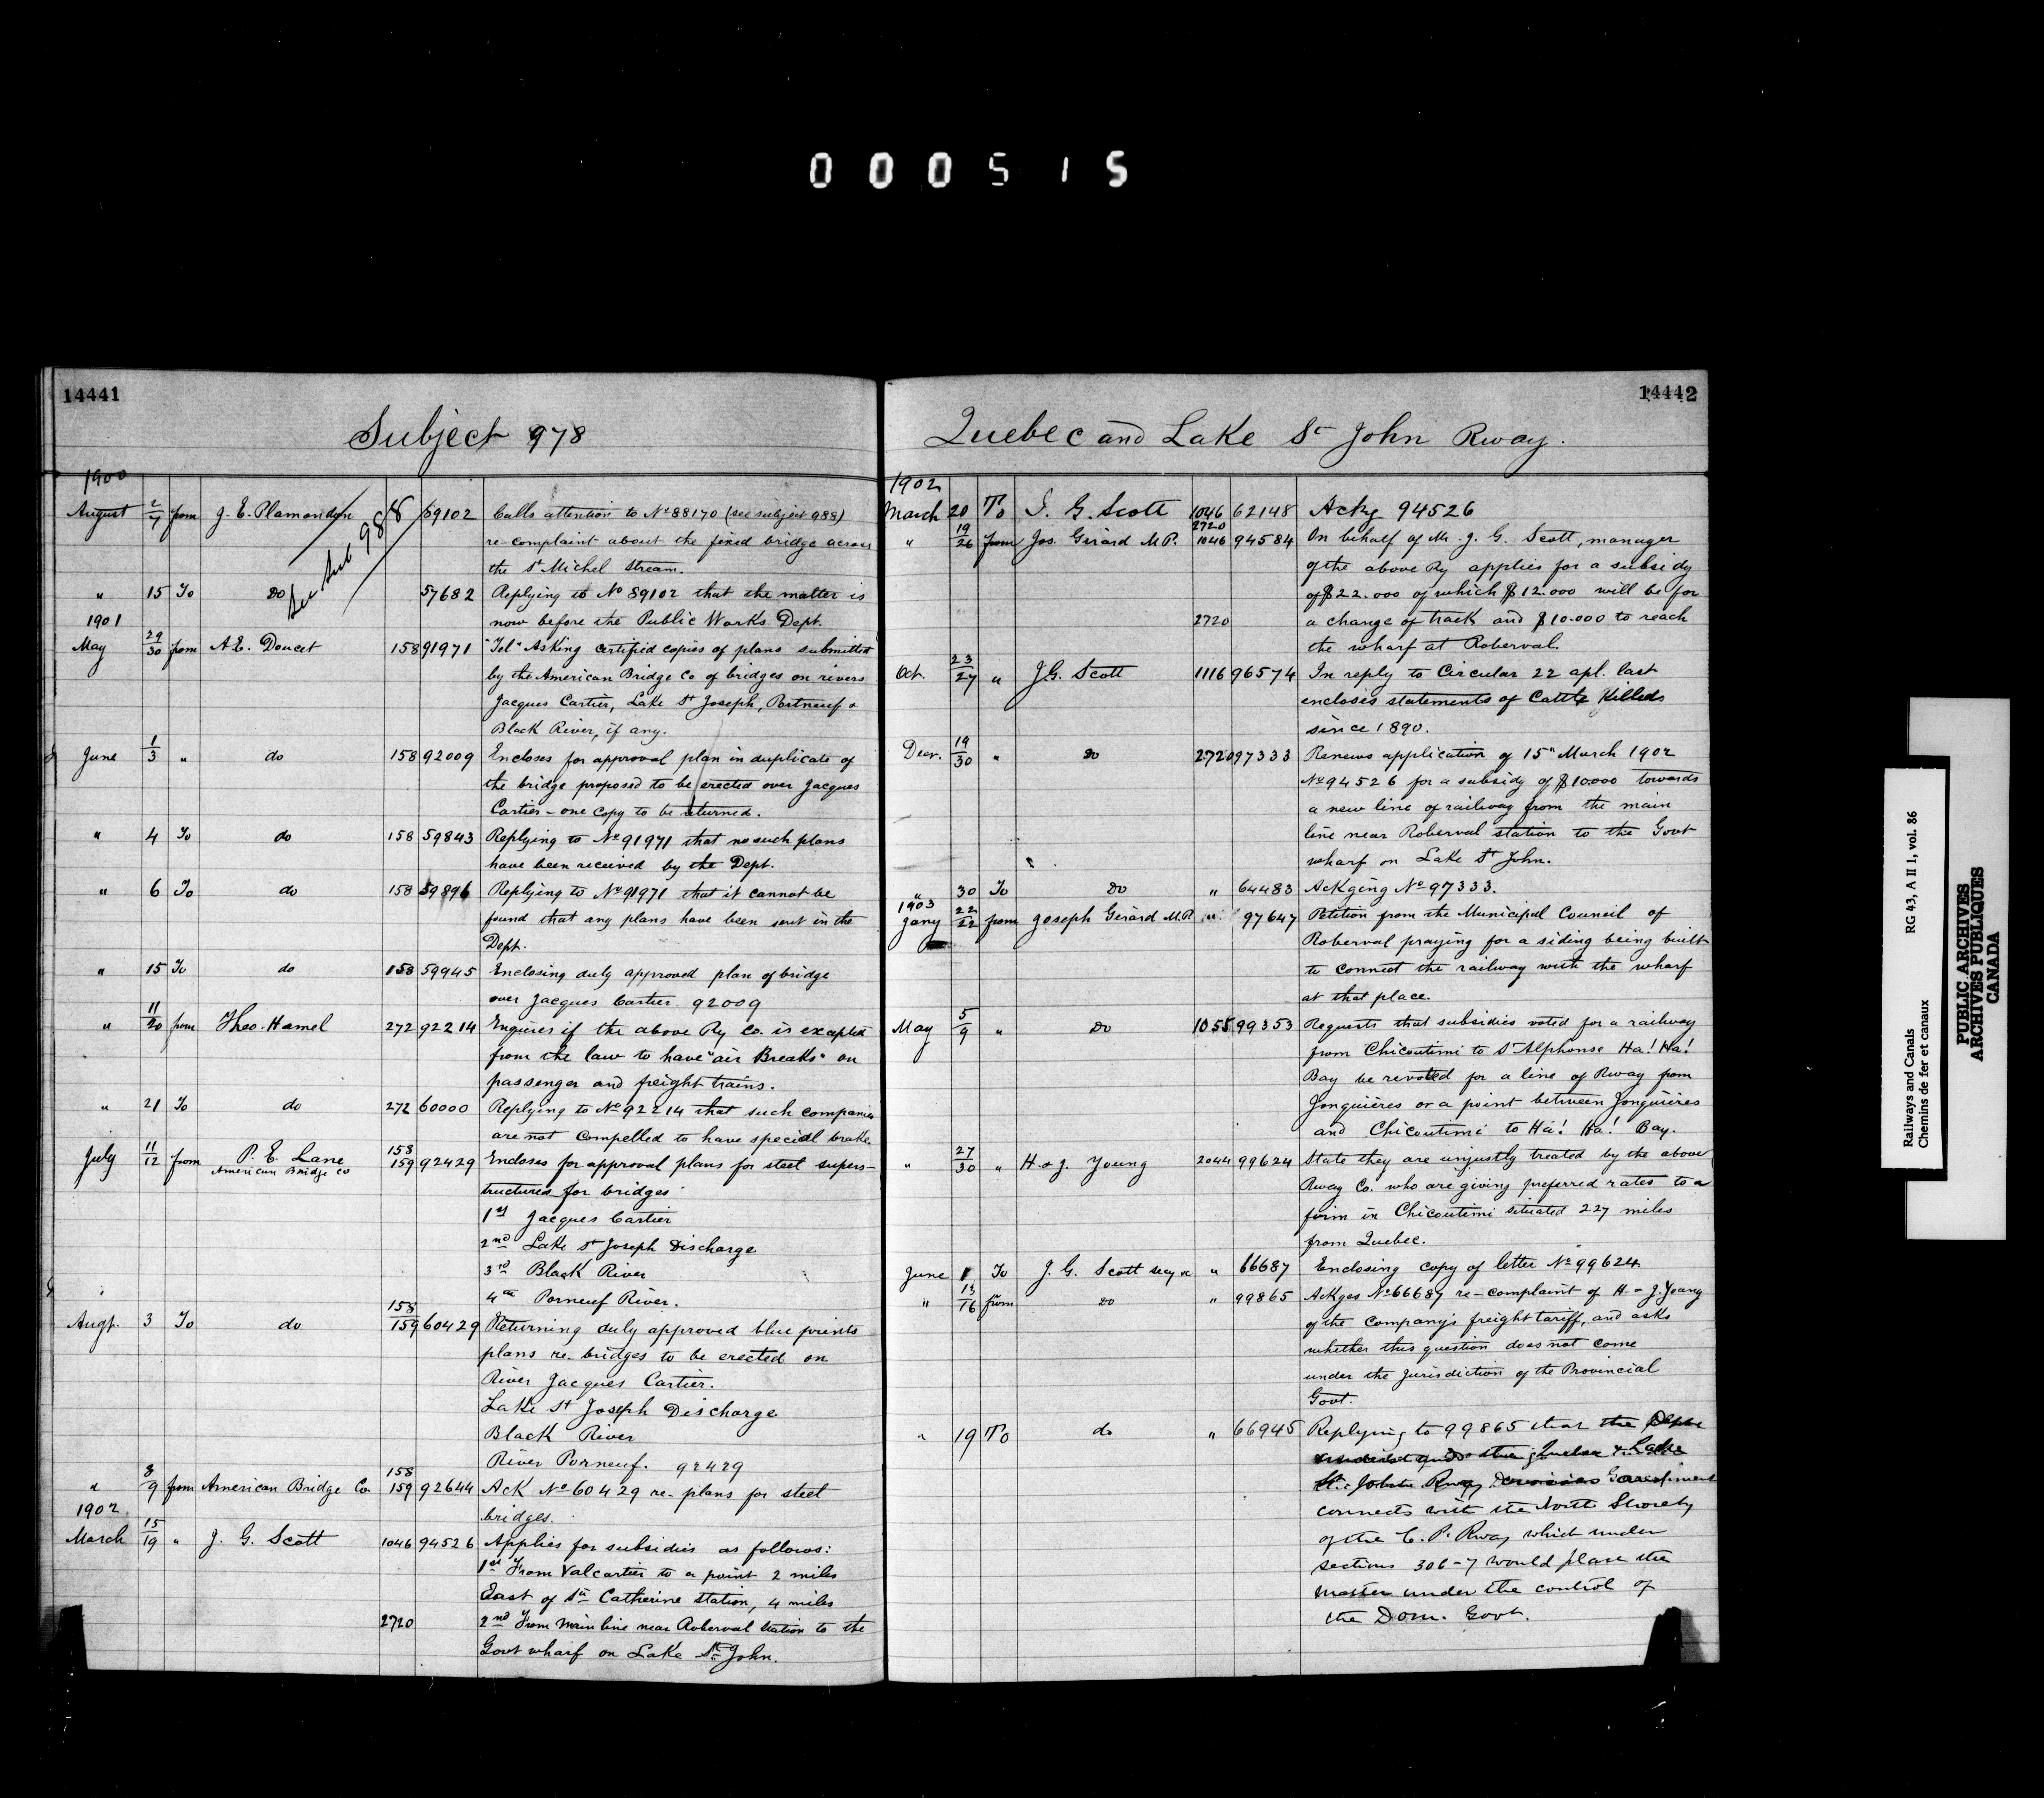 000515
14441
Subject 978
1900
August 2/7 from J. E. Plamondon 89102 Calls attention to No 88170 (see subject 988)
See Sub 988
re-complaint about the fixed bridge across
the St Michel Stream.
" 15 To Do 57682 Replying to No 89102 that the matter is
now before the Public Works Dept.
1901
May 29/30 from A. E. Doucet 158 91971 "Tel" Asking certified copies of plans submitted
by the American Bridge Co of bridges on rivers
Jacques Cartier, Lake St Joseph, Portneuf &
Black River, if any.
June 1/3 " do 158 92009 Encloses for approval plan in duplicate of
the bridge proposed to be erected over Jacques
Cartier - one copy to be returned.
" 4 To do 158 59843 Replying to No 91971 that no such plans
have been received by the Dept.
" 6 To do 158 59896 Replying to No 91971 that it cannot be
found that any plans have been sent in the
Dept.
" 15 To do 158 59945 Enclosing duly approved plan of bridge
over Jacques Cartier 92009
" 11/20 from Theo. Hamel 272 92214 Enquires if the above Ry Co. is excepted
from the law to have "air Breaks" on
passenger and freight trains.
" 21 To do 272 60000 Replying to No 92214 that such companies
are not compelled to have special brake
July 11/12 from P. E. Lane 158 159 92429 Encloses for approval plans for steel supers-
American Bridge Co
tructures for bridges
1st Jacques Cartier
2nd Lake St Joseph Discharge
3rd Black River
4th Porneuf River.
Augt. 3 To do 158 159 60429 Returning duly approved blue prints
plans re-bridges to be erected on
River Jacques Cartier.
Lake St Joseph Discharge
Black River
River Porneuf. 92429
" 8/9 from American Bridge Co 158 159 92644 Ack No 60429 re-plans for steel
bridges.
1902
March 15/19 " J. G. Scott 1046 94526 Applies for subsidies as follows:
1st From Valcartier to a point 2 miles
East of Ste Catherine Station, 4 miles
2720 2nd From main line near Roberval Station to the
Govt wharf on Lake St John.
14442
Quebec and Lake St John Rway.
1902
March 20 To J. G. Scott 1046 62148 Ackg 94526
" 19/26 from Jos. Girard M.P. 2720 1046 94584 On behalf of Mr. J. G. Scott, manager
of the above Ry applies for a subsidy
of $22.000 of which $12.000 will be for
2720 a change of track and $10.000 to reach
the wharf at Roberval.
Oct. 23/27 " J. G. Scott 1116 96574 In reply to Circular 22 apl. last
encloses statements of Cattle Killed
since 1890.
Decr. 19/30 " Do 2720 97333 Renews application of 15th March 1902
No 94526 for a subsidy of $10000 towards
a new line of railway from the main
line near Roberval station to the Govt
wharf on Lake St John.
" 30 To Do " 64483 Ackging No 97333.
1903
Jany 22/22 from Joseph Girard M.P. " 97647 Petition from the Municipal Council of
Roberval praying for a siding being built
to connect the railway with the wharf
at that place.
May 5/9 " Do 1055 99353 Requests that subsidies voted for a railway
from Chicoutimi to St Alphonse Ha! Ha!
Bay be revoted for a line of Rway from
Jonquières or a point between Jonquières
and Chicoutimi to Ha! Ha! Bay.
" 27/30 " H. & J. Young 2044 99624 State they are unjustly treated by the above
Rway Co. who are giving preferred rates to a
firm in Chicoutimi situated 227 miles
from Quebec.
June 1 To J. G. Scott Secy &c " 66687 Enclosing copy of letter No 99624
" 13/16 from do " 99865 Ackges No 66687 re-complaint of H. & J. Young
of the Company's freight tariff, and asks
whether this question does not come
under the jurisdiction of the Provincial
Govt.
" 19 To do " 66945 Replying to 99865 that the Dept
understands the Quebec & Lake
St. John Rway
connects with the North Shore Ry
of the C. P. Rway which under
sections 306-7 would place the
matter under the control of
the Dom. Govt.
Railways and Canals RG 43, A II 1, vol. 86
Chemins de fer et canaux
PUBLIC ARCHIVES
ARCHIVES PUBLIQUES
CANADA